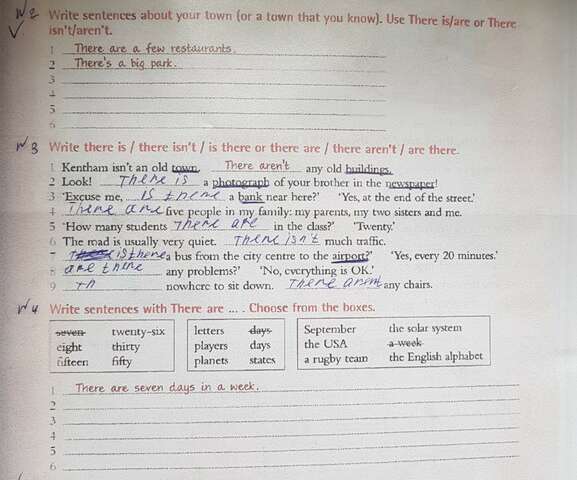 N2 Write sentences about your town (or a town that you know). Use There is/are or There
isn't/aren't.
1 There are a few restaurants.
2 There's a big park.
3
4
5
6
N3 Write there is / there isn't / is there or there are / there aren't / are there.
1 Kentham isn't an old town. There aren't any old buildings.
2 Look! There is a photograph of your brother in the newspaper!
3 'Excuse me, is there a bank near here?' 'Yes, at the end of the street.'
4 There are five people in my family: my parents, my two sisters and me.
5 'How many students There are in the class?' 'Twenty.'
6 The road is usually very quiet. There isn't much traffic.
7 is there a bus from the city centre to the airport?' 'Yes, every 20 minutes.'
8 are there any problems?' 'No, everything is OK.'
9 Th nowhere to sit down. There arent any chairs.
N4 Write sentences with There are ... . Choose from the boxes.
seven twenty-six letters days September the solar system
eight thirty players days the USA a week
fifteen fifty planets states a rugby team the English alphabet
1 There are seven days in a week.
2
3
4
5
6